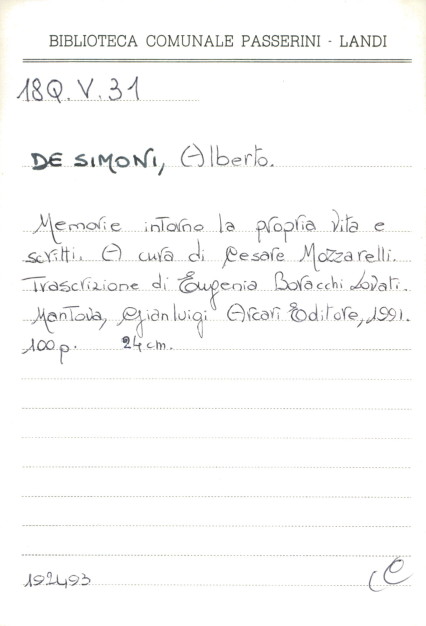 BIBLIOTECA COMUNALE PASSERINI - LANDI
18Q.V.31
DE SIMONI, Alberto.
Memorie intorno la propria vita e
scritti. A cura di Cesare Mozzarelli.
Trascrizione di Eugenia Boracchi Lovati.
Mantova, Gianluigi Arcari Editore, 1991.
100 p. 24 cm.
192493
C